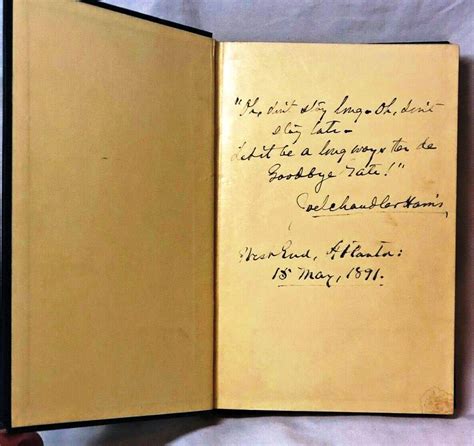 "Oh, don't stay long - Oh, don't
stay late -
Hit be a long ways ter de
Goodbye Gate!"
Joel Chandler Harris
West End, Atlanta:
15 May, 1891.